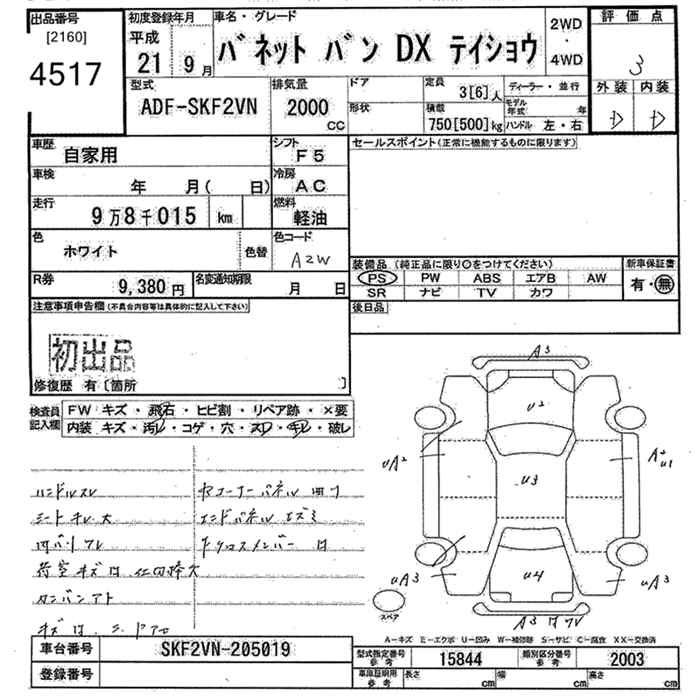 出品番号
[2160]
4517
初度登録年月
平成 21年 9月
車名・グレード
バネット バン DX テイショウ
2WD
・
4WD
評価点
3
外装 内装
D D
型式
ADF-SKF2VN
排気量
2000
CC
ドア
形状
定員
3[6]人
積載
750[500]kg
ディーラー・並行
モデル年式 年
ハンドル 左・右
車歴
自家用
シフト
F5
セールスポイント(正常に機能するものに限ります)
車検
年 月( 日)
冷房
AC
走行
9万8千015 km
燃料
軽油
色
ホワイト
色替
色コード
A2W
装備品 (純正品に限り○をつけてください)
新車保証書
PS PW ABS エアB AW
SR ナビ TV カワ
有・無
R券
9,380円
名変通知期限
月 日
注意事項申告欄(不具合内容等は具体的に記入して下さい)
後日品
初出品
修復歴 有〔箇所 〕
検査員記入欄
FW キズ・飛石・ヒビ割・リペア跡・×要
内装 キズ・汚レ・コゲ・穴・スレ・キレ・破レ
ハンドルスレ
シートキレ大
カンバンアト
A3
U2
UA2
U3
A2
U1
UA3
U4
UA3
スペア
A3
A-キズ E-エクボ U-凹み W-補修跡 S-サビ C-腐食 XX-交換済
車台番号
SKF2VN-205019
登録番号
型式指定番号
参考
15844
類別区分番号
参考
2003
車庫証明用
参考
長さ cm
幅 cm
高さ cm